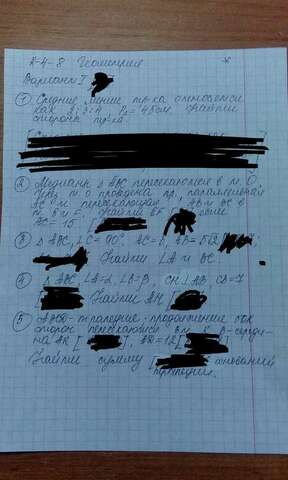 К-4-8 Геометрия
Вариант I
① Средние линии тр-ка относятся
как 2:3:4 P = 45см Найти
стороны тр-ка.
② Медианы в △ABC пересекаются в т. O.
Через т. O проведена пр. параллельная
AC и пересекающая AB и BC в
т. E и F. Найти EF если
AC = 15
③ △ABC, ∠C = 90°, AC =
Найти ∠A и BC.
④ △ABC, ∠A=α, ∠B=β, CH⊥AB, CB=7
Найти AH
⑤ ABCD - трапеция продолжение бок
сторон пересекаются в т. K B-середи-
на AK
Найти сумму оснований
трапеции.